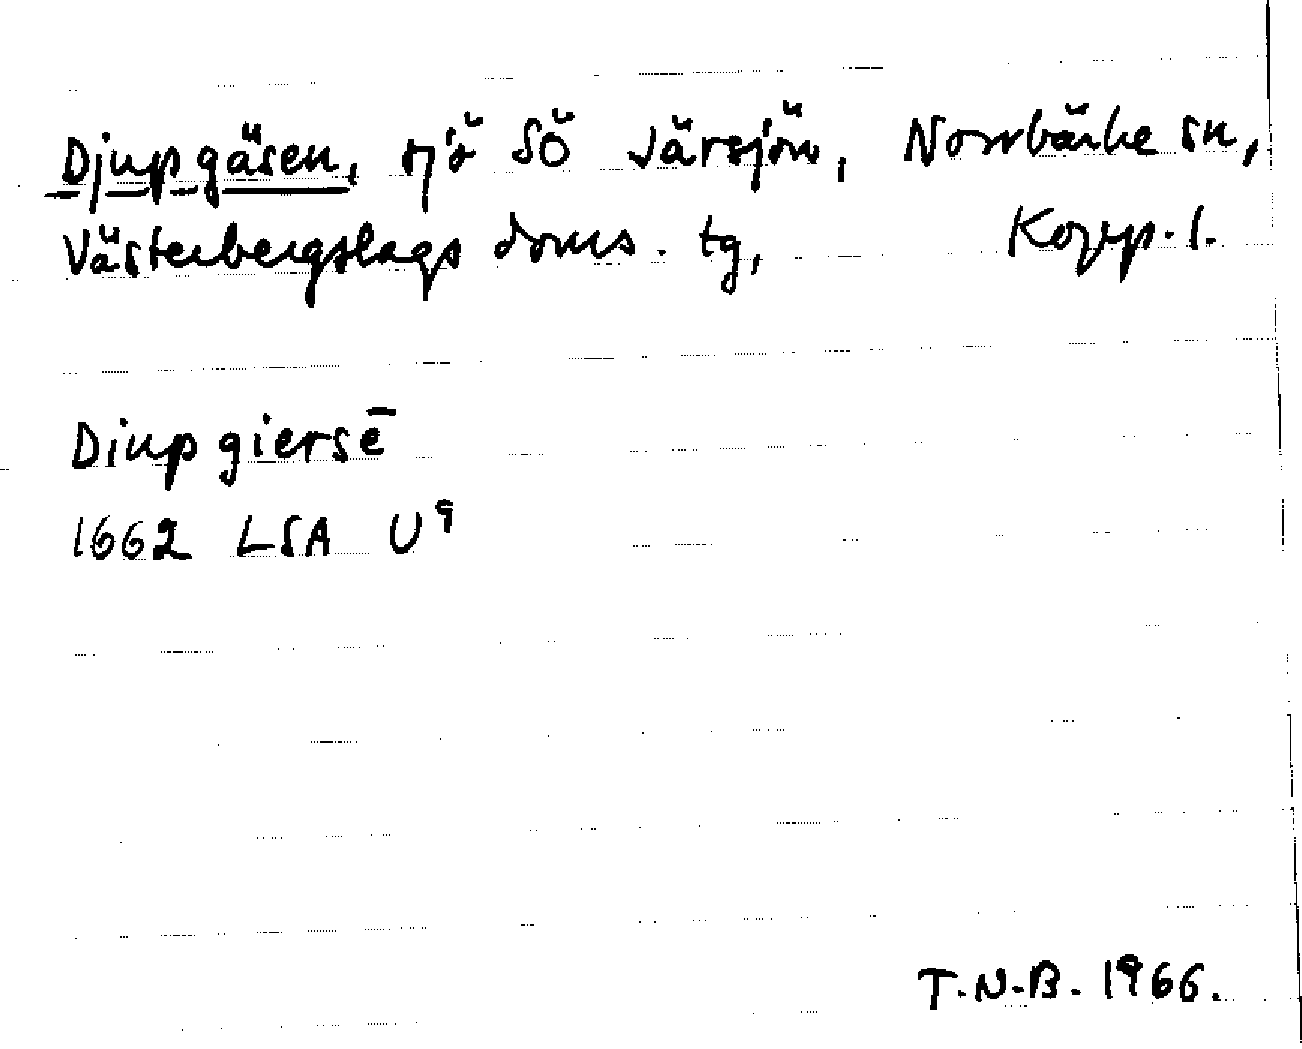 Djupgäsen, sjö SÖ Järsjön, Norrbärke sn,
Västerbergslags doms. tg, Kopp. l.
Diupgiersē
1662 LSA U⁹
T.N.B. 1966.